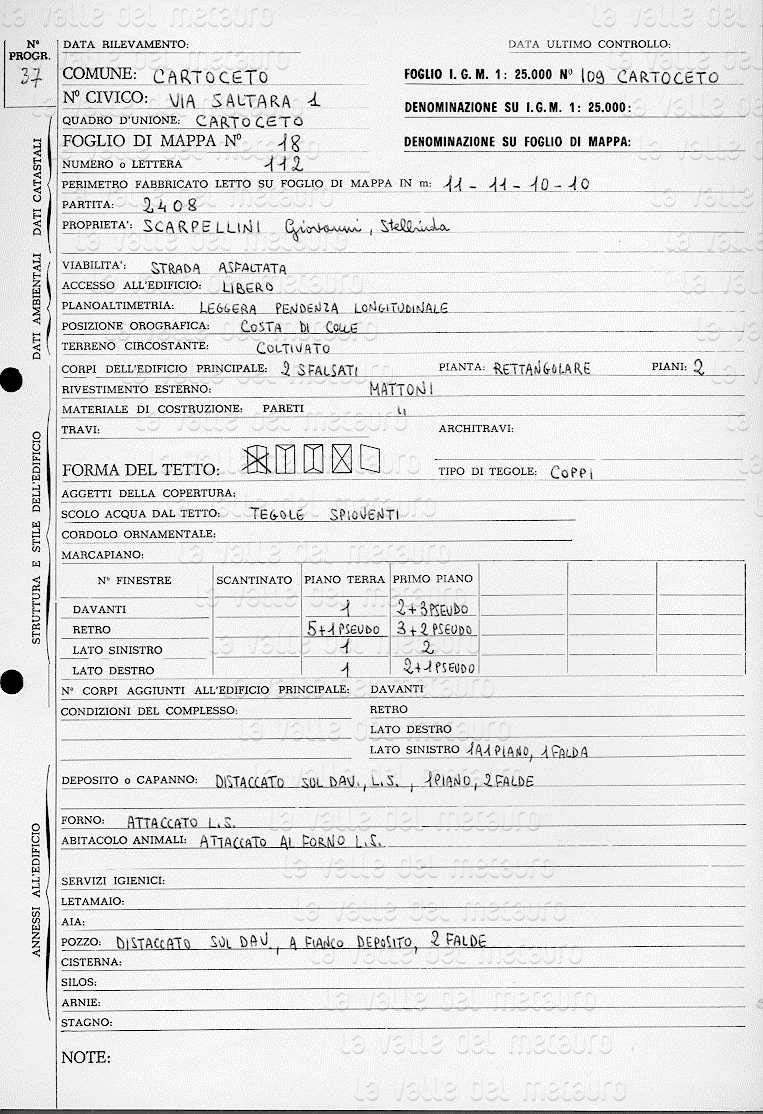 N° PROGR. 37
DATA RILEVAMENTO: DATA ULTIMO CONTROLLO:
COMUNE: CARTOCETO FOGLIO I. G. M. 1: 25.000 N° 109 CARTOCETO
N° CIVICO: VIA SALTARA 1 DENOMINAZIONE SU I.G.M. 1: 25.000:
QUADRO D'UNIONE: CARTOCETO
FOGLIO DI MAPPA N° 18 DENOMINAZIONE SU FOGLIO DI MAPPA:
NUMERO o LETTERA 112
PERIMETRO FABBRICATO LETTO SU FOGLIO DI MAPPA IN m: 11 - 11 - 10 - 10
PARTITA: 2408
PROPRIETA': SCARPELLINI Giovanni, Stellinda
DATI CATASTALI
VIABILITA': STRADA ASFALTATA
ACCESSO ALL'EDIFICIO: LIBERO
PLANOALTIMETRIA: LEGGERA PENDENZA LONGITUDINALE
POSIZIONE OROGRAFICA: COSTA DI COLLE
TERRENO CIRCOSTANTE: COLTIVATO
DATI AMBIENTALI
CORPI DELL'EDIFICIO PRINCIPALE: 2 SFALSATI PIANTA: RETTANGOLARE PIANI: 2
RIVESTIMENTO ESTERNO: MATTONI
MATERIALE DI COSTRUZIONE: PARETI "
TRAVI: ARCHITRAVI:
FORMA DEL TETTO: TIPO DI TEGOLE: COPPI
AGGETTI DELLA COPERTURA:
SCOLO ACQUA DAL TETTO: TEGOLE SPIOVENTI
CORDOLO ORNAMENTALE:
MARCAPIANO:
N° FINESTRE SCANTINATO PIANO TERRA PRIMO PIANO
DAVANTI 1 2+3 PSEUDO
RETRO 5+1 PSEUDO 3+2 PSEUDO
LATO SINISTRO 1 2
LATO DESTRO 1 2+1 PSEUDO
STRUTTURA E STILE DELL'EDIFICIO
N° CORPI AGGIUNTI ALL'EDIFICIO PRINCIPALE: DAVANTI
CONDIZIONI DEL COMPLESSO: RETRO
LATO DESTRO
LATO SINISTRO 1 A 1 PIANO, 1 FALDA
DEPOSITO o CAPANNO: DISTACCATO SUL DAV., L.S., 1 PIANO, 2 FALDE
FORNO: ATTACCATO L.S.
ABITACOLO ANIMALI: ATTACCATO AL FORNO L.S.
SERVIZI IGIENICI:
LETAMAIO:
AIA:
POZZO: DISTACCATO SUL DAV., A FIANCO DEPOSITO, 2 FALDE
CISTERNA:
SILOS:
ARNIE:
STAGNO:
ANNESSI ALL'EDIFICIO
NOTE:
La valle del metauro